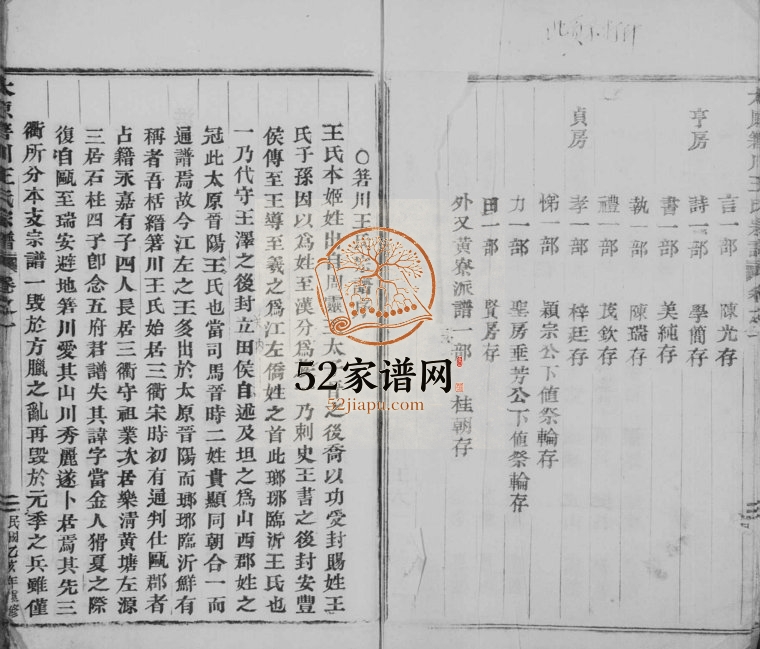 亨房
言一部 陳光存
詩一部 學簡存
書一部 美純存
執一部 陳瑞存
禮一部 茂欽存
貞房
孝一部 梓廷存
悌一部 穎宗公下値祭輪存
力一部 聖房垂芳公下値祭輪存
田一部 賢房存
外又黃寮派譜一部 桂朝存
太原箬川王氏宗譜 卷之一
○箬川王
王氏本姬姓出自周靈太之後裔以功受封賜姓王
氏子孫因以爲姓至漢分爲乃刺史王書之後封安豐
侯傳至王導至羲之爲江左僑姓之首此瑯琊臨沂王氏也
一乃代守王澤之後封立田侯自述及坦之爲山西郡姓之
冠此太原晉陽王氏也當司馬晉時二姓貴顯同朝合一而
通譜焉故今江左之王多出於太原晉陽而瑯琊臨沂鮮有
稱者吾栝縉箬川王氏始居三衢宋時初有通判仕甌郡者
占籍永嘉有子四人長居三衢守祖業次居樂清黃塘左源
三居石柱四子卽念五府君譜失其諱字當金人猾夏之際
復自甌至瑞安避地箬川愛其山川秀麗遂卜居焉其先三
衢所分本支宗譜一毁於方臘之亂再毁於元季之兵雖僅
太原箬川王氏宗譜 卷之一
民國乙亥年重修
52家谱网
52jiapu.com